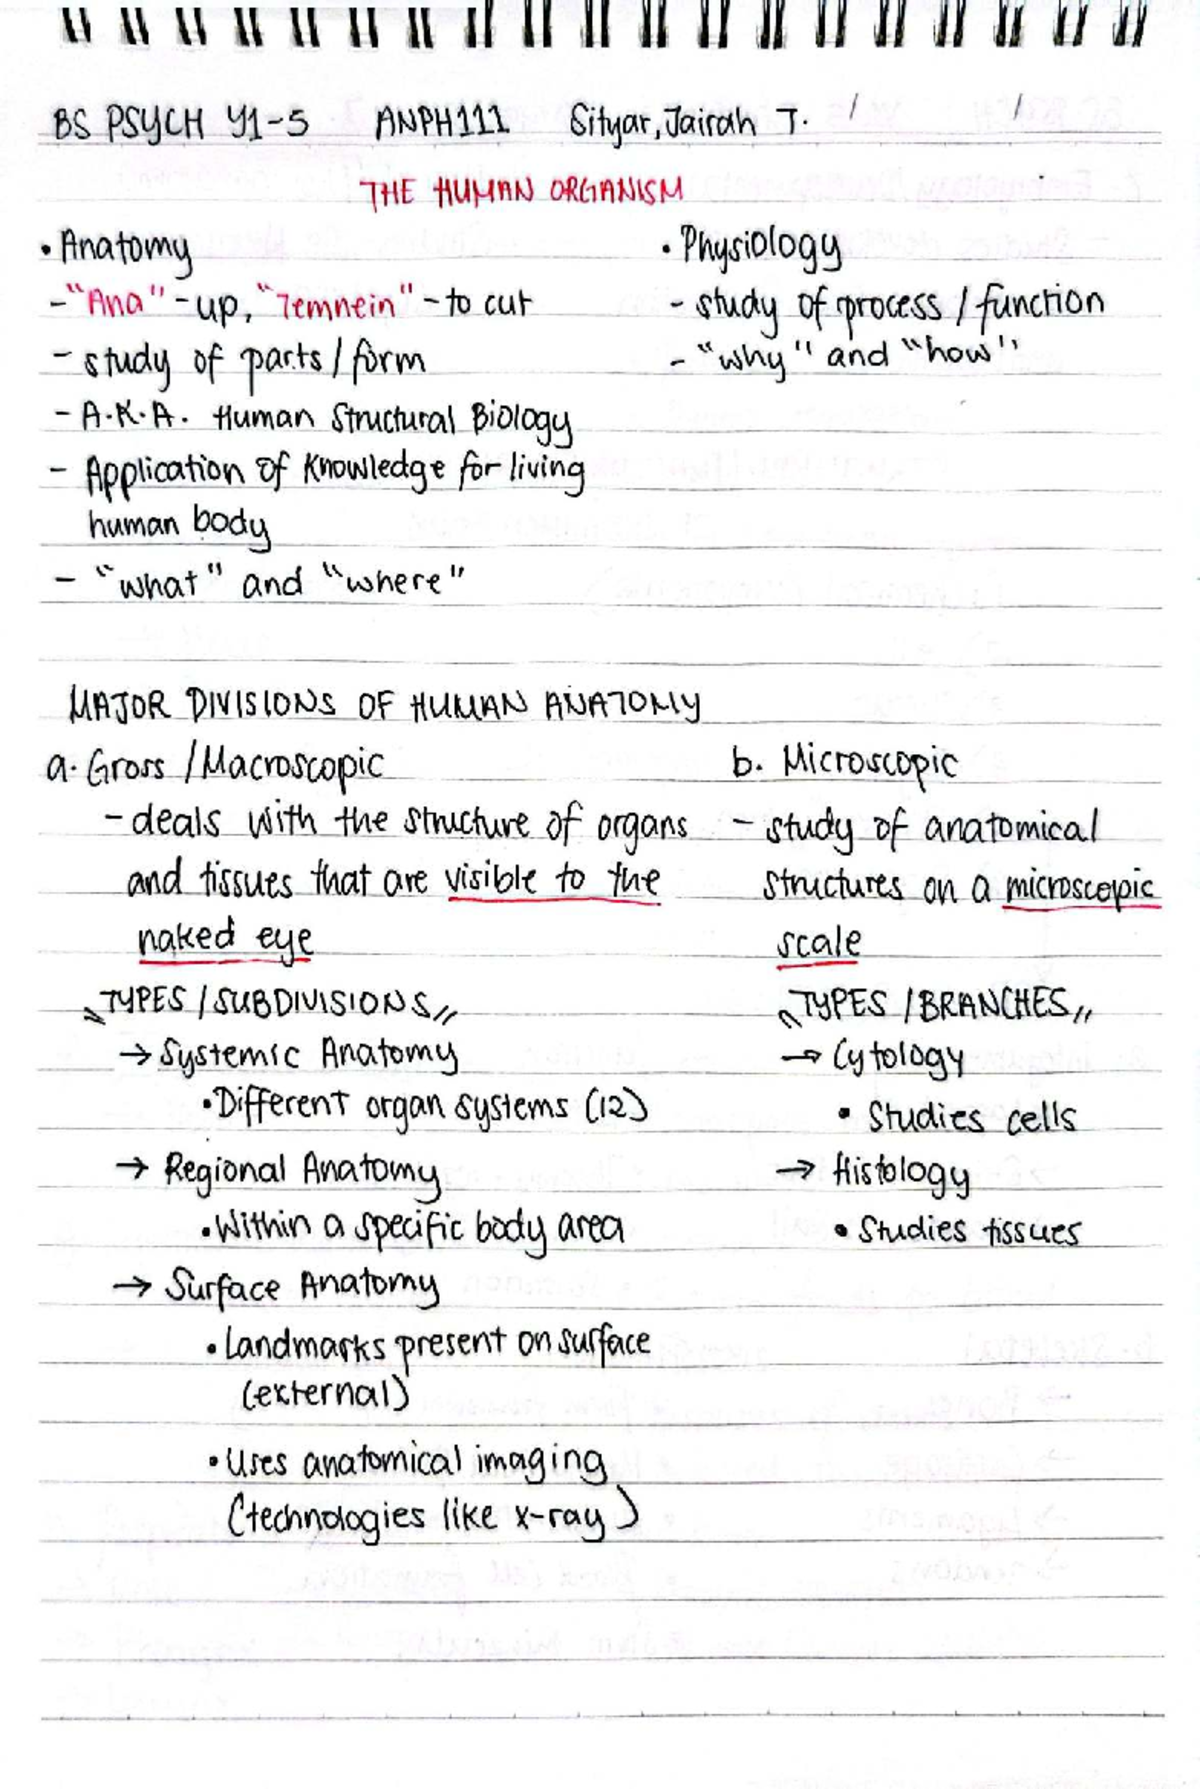 BS PSYCH Y1-5 ANPH111 Sityar, Jairah T. / /
THE HUMAN ORGANISM
• Anatomy
- "Ana" - up, "Temnein" - to cut
- study of parts / form
- A.K.A. Human Structural Biology
- Application of Knowledge for living
human body
- "what" and "where"
• Physiology
- study of process / function
- "why" and "how"
MAJOR DIVISIONS OF HUMAN ANATOMY
a. Gross / Macroscopic
- deals with the structure of organs
and tissues that are visible to the
naked eye
TYPES / SUBDIVISIONS
→ Systemic Anatomy
• Different organ systems (12)
→ Regional Anatomy
• Within a specific body area
→ Surface Anatomy
• Landmarks present on surface
(external)
• Uses anatomical imaging
(technologies like x-ray)
b. Microscopic
- study of anatomical
structures on a microscopic
scale
TYPES / BRANCHES
→ Cytology
• Studies cells
→ Histology
• Studies tissues